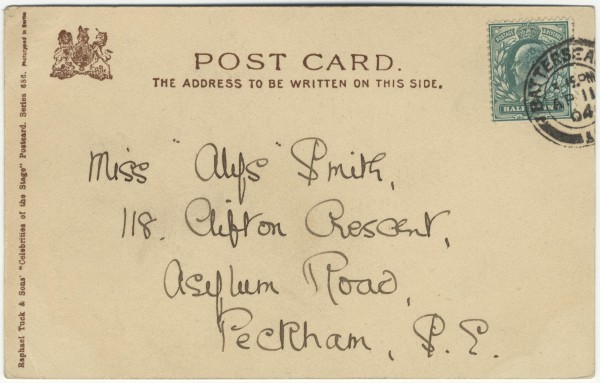 POST CARD.
THE ADDRESS TO BE WRITTEN ON THIS SIDE.
HALF
BATTERSEA
PM
11
04
Miss "Alys" Smith,
118. Clifton Crescent,
Asylum Road,
Peckham, S.E.
Raphael Tuck & Sons' "Celebrities of the Stage" Postcard. Series 656.